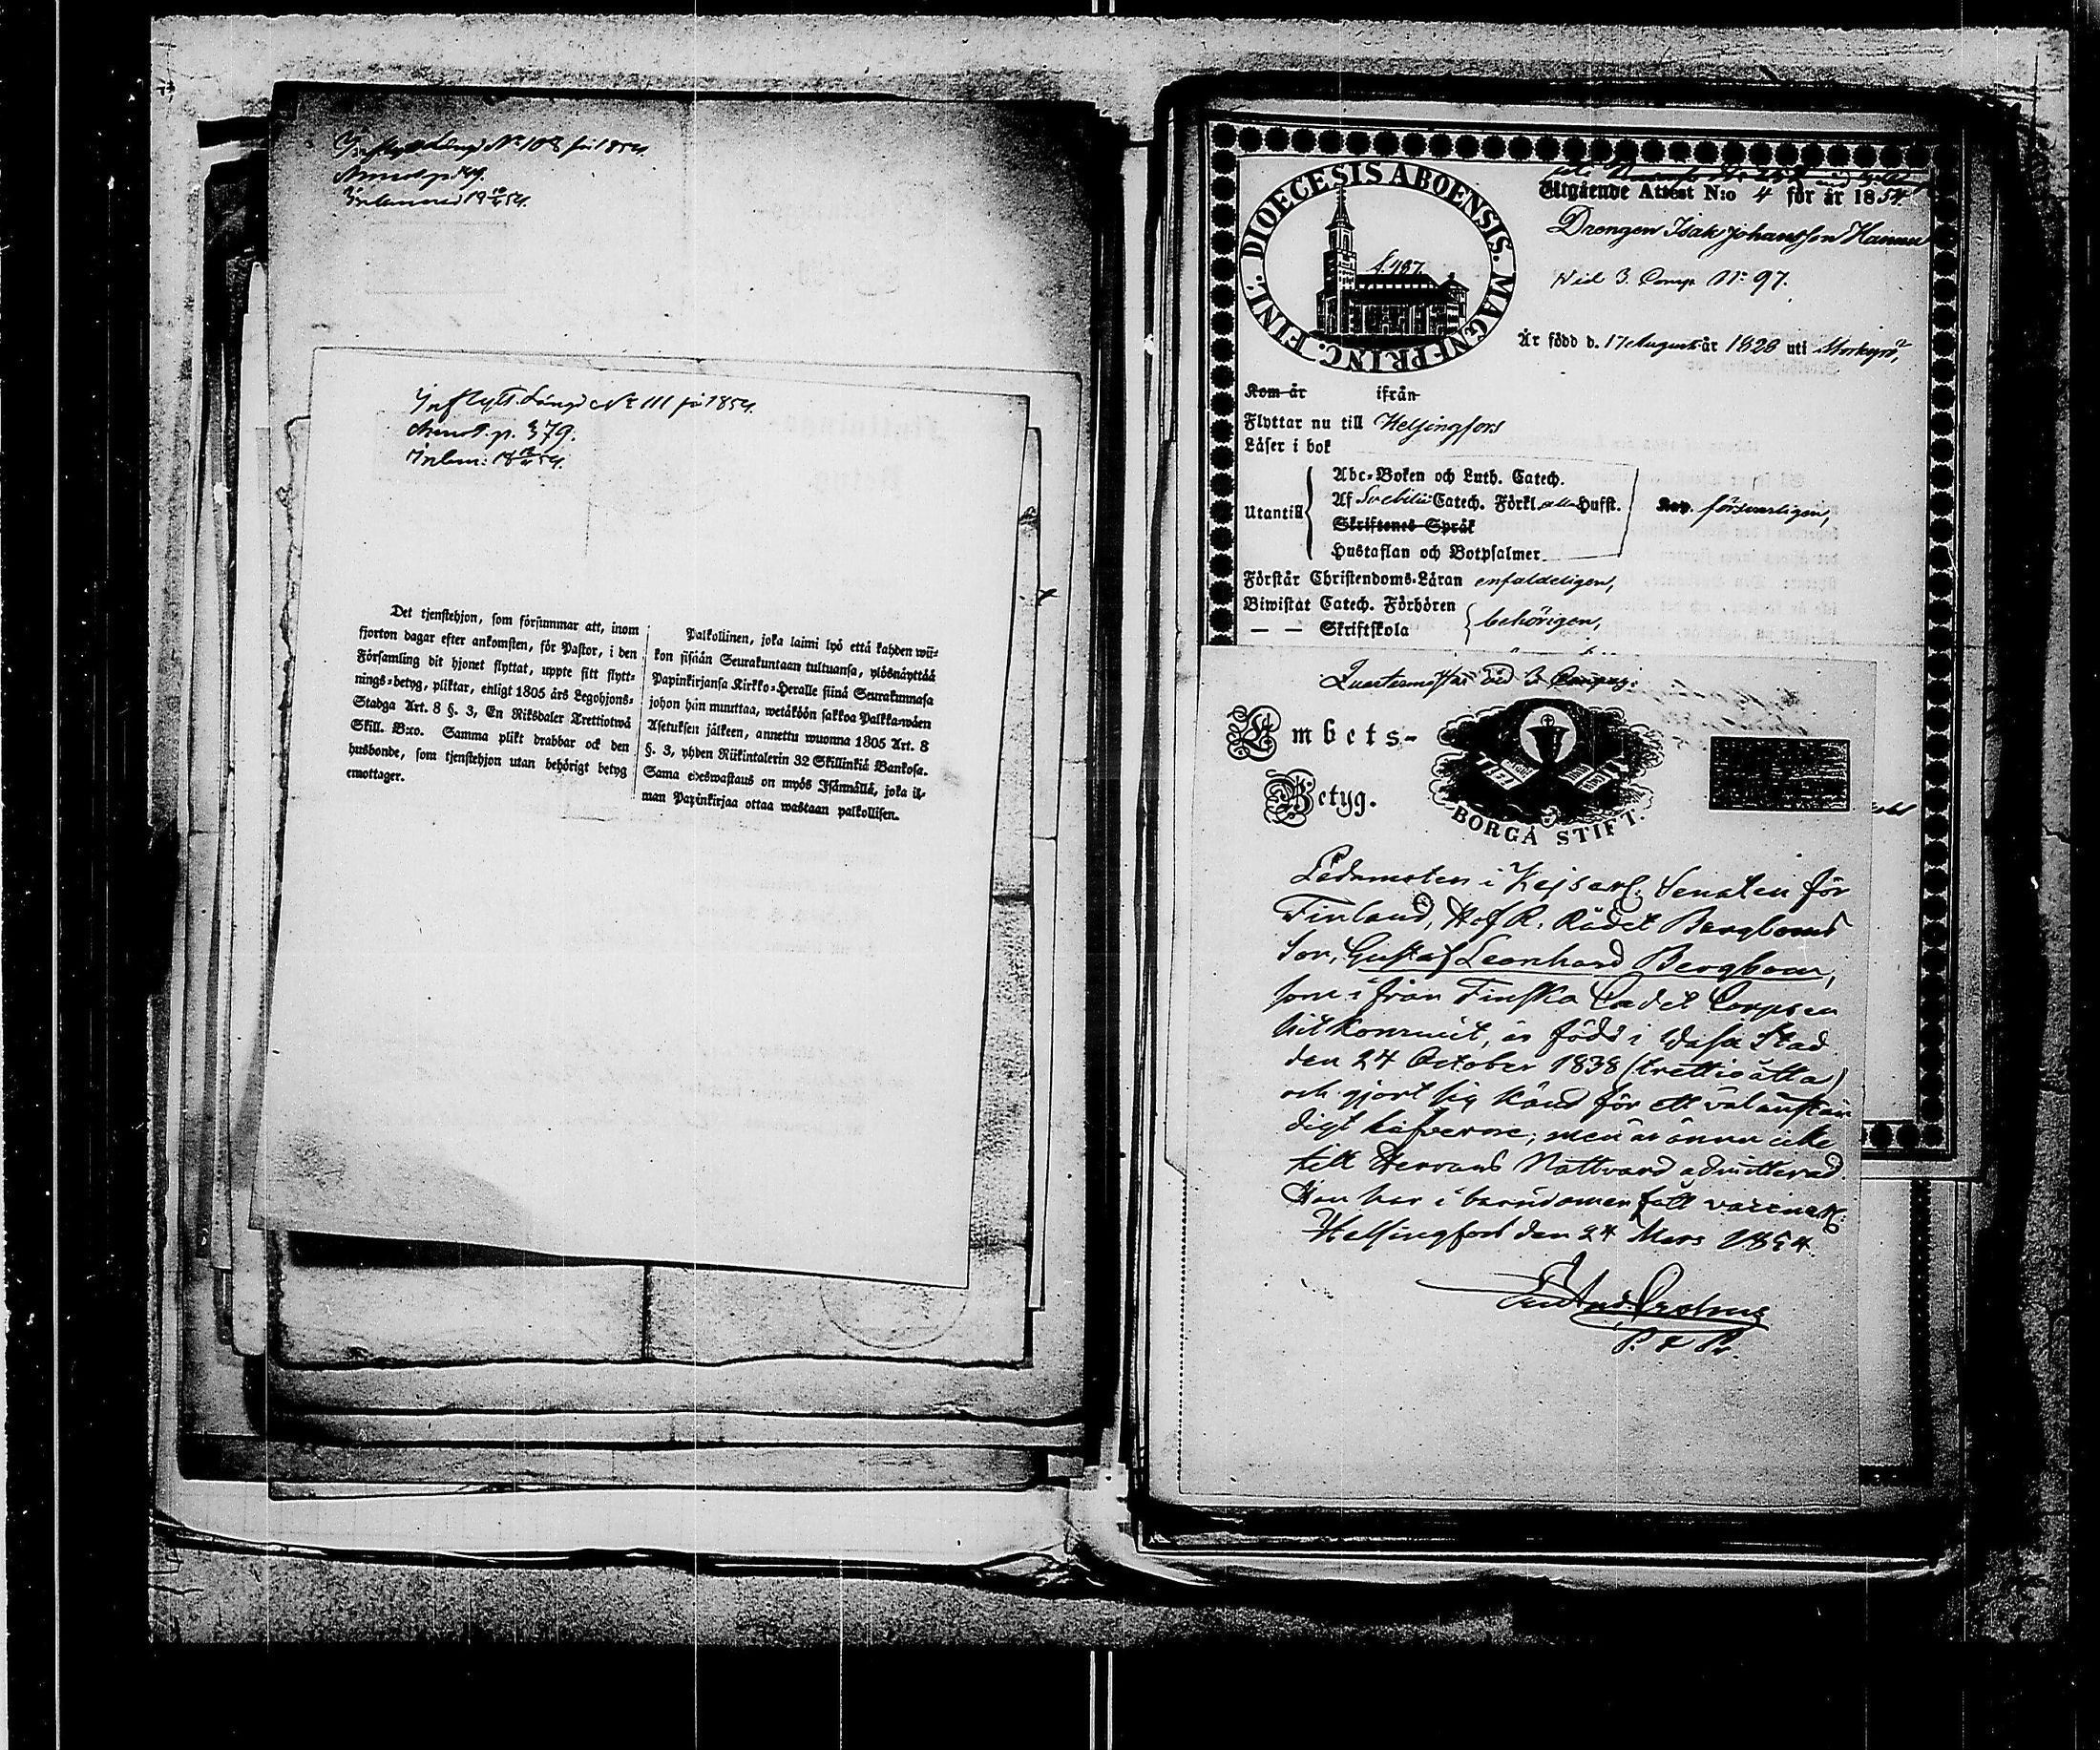 Inflytt. Längd No 108 för 1854.
Inflytt. Längd No 111 för 1854.
Annot. p. 379.
Det tjenstehjon, som försummar att, inom
fjorton dagar efter ankomsten, för Pastor, i den
Församling dit hjonet flyttat, uppte sitt flytt-
nings-betyg, pliktar, enligt 1805 års Legohjons-
Stadga Art. 8 §. 3, En Riksdaler Trettiotwå
Skill. B:co. Samma plikt drabbar ock den
husbonde, som tjenstehjon utan behörigt betyg
emottager.
Palkollinen, joka laimi lyö että kahden wii-
kon sisään Seurakuntaan tultuansa, ylösnäyttää
Papinkirjansa Kirkko-Heralle siinä Seurakunnasa
johon hän muuttaa, wetäköön sakkoa Palkka-wäen
Asetuksen jälkeen, annettu wuonna 1805 Art. 8
§. 3, yhden Riikintalerin 32 Skillinkiä Bankosa.
Sama edeswastaus on myös Isännällä, joka il-
man Papinkirjaa ottaa wastaan palkollisen.
DIOECESIS ABOENSIS. MAGNI PRINC. FINL.
Utgående Attest N:o 4 för år 1854.
Drengen Isak Johansson
Wid 3. Comp. No 97.
Är född d. 17 Augusti år 1828 uti Storkyro,
Kom år ifrån
Flyttar nu till Helsingfors
Läser i bok
Utantill
Abc-Boken och Luth. Catech.
Af Svebilii Catech. Förkl. alla Hufst.
Skriftenes Språk
Hustaflan och Botpsalmer
försvarligen,
Förstår Christendoms-Läran enfaldeligen,
Biwistat Catech. Förhören
— — Skriftskola
behörigen,
Embets-
Betyg.
BORGÅ STIFT.
Ledamoten i Kejserl. Senaten för
Finland, Hof R. Rådet Bergboms
Son, Gustaf Leonhard Bergbom,
som ifrån Finska Cadet Corpsen
hitkommit, är född i Wasa Stad
den 24 October 1838 (trettioåtta)
och gjort sig känd för ett välanstän
digt lefverne; men är ännu icke
till Herrans Nattvard admitterad.
Han har i barndomen haft vaccinen.
Helsingfors den 24 Mars 1854.